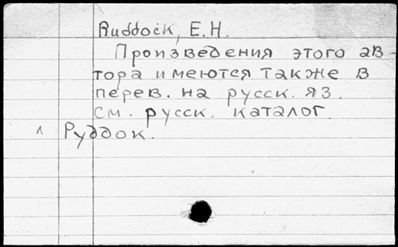 Ruddock, E.H.
Произведения этого ав-
тора имеются также в
перев. на русск. яз.
См. русск. каталог.
^ Руддок.